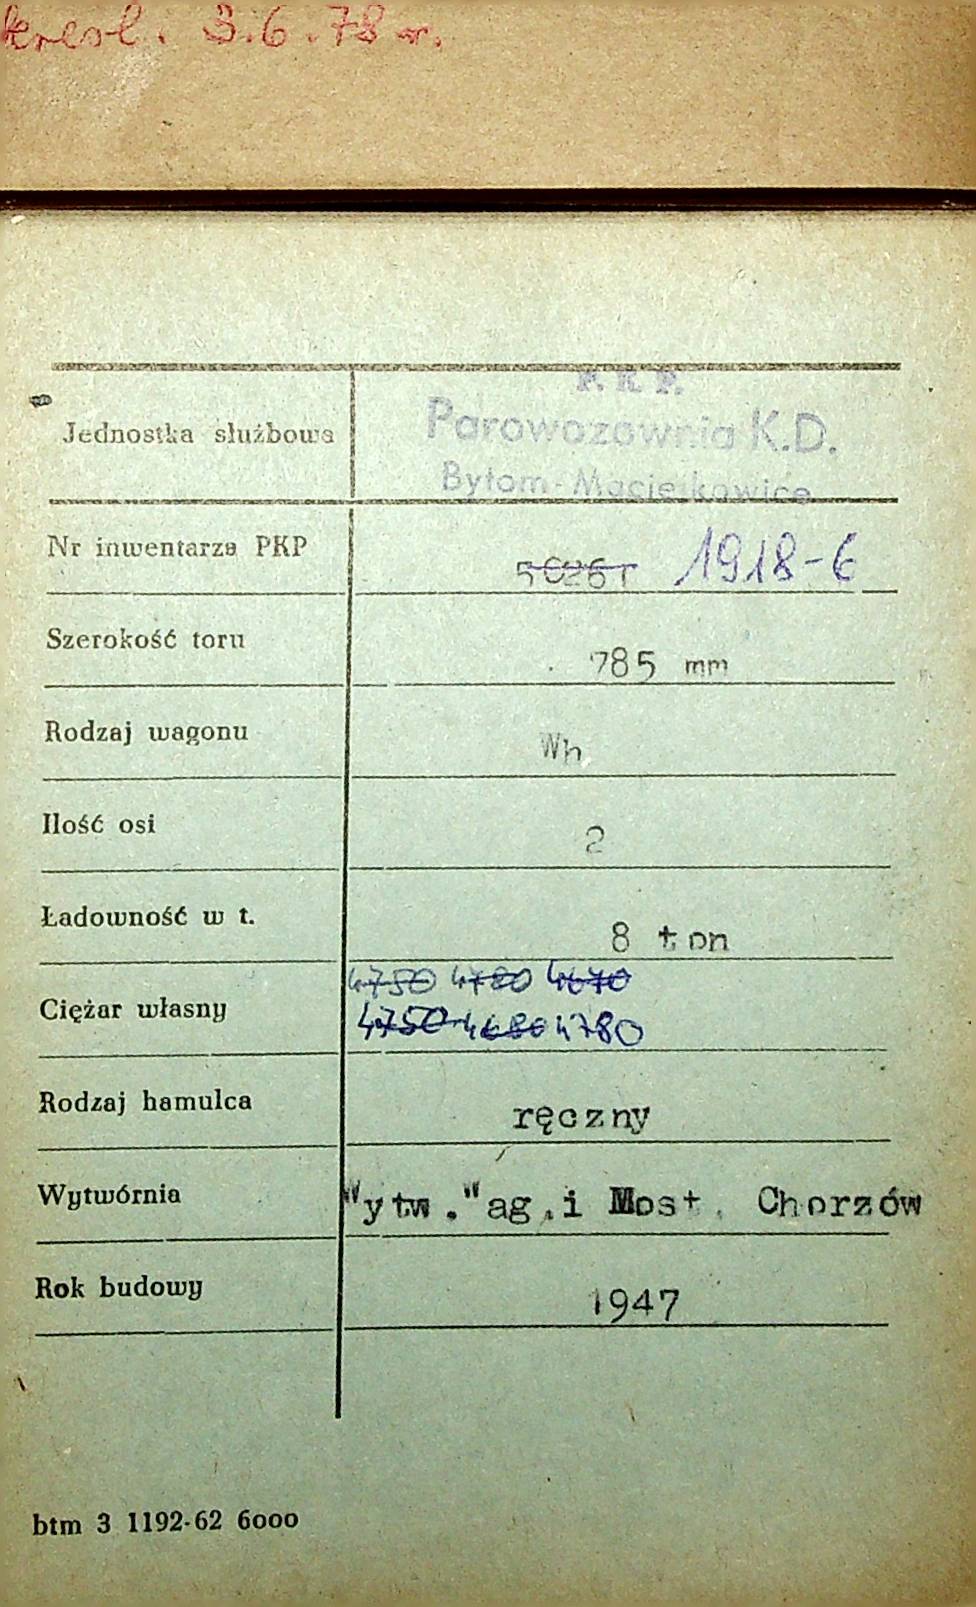 kresl. 3.6.78 r.
P. K. P.
Jednostka służbowa Parowozownia K.D.
Bytom-Maciejkowice
Nr inwentarza PKP 1918-6
Szerokość toru 785 mm
Rodzaj wagonu Wh
Ilość osi 2
Ładowność w t. 8 ton
4750 4780 4670
Ciężar własny 4750 4680 4780
Rodzaj hamulca ręczny
Wytwórnia Wytw.Wag.i Most. Chorzów
Rok budowy 1947
btm 3 1192-62 6000